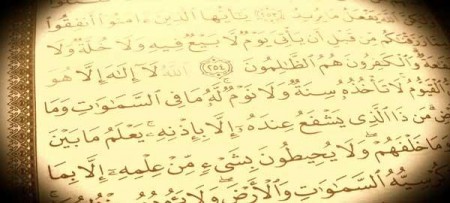 يفعل ما يريد ۝ يـٰٓأيها ٱلذين ءامنوٓا۟ أنفقوا۟
رزقنـٰكم من قبل أن يأتى يوم لا بيع فيه ولا خلة ولا
شفعة وٱلكـٰفرون هم ٱلظـٰلمون ۝٢٥٤ ٱلله لآ إلـٰه إلا هو
ٱلقيوم لا تأخذهۥ سنة ولا نوم لهۥ ما فى ٱلسمـٰوٰت وما
من ذا ٱلذى يشفع عندهۥٓ إلا بإذنهۦ يعلم ما بين
وما خلفهم ولا يحيطون بشىء من علمهۦٓ إلا بما
كرسيه ٱلسمـٰوٰت وٱلأرض ولا